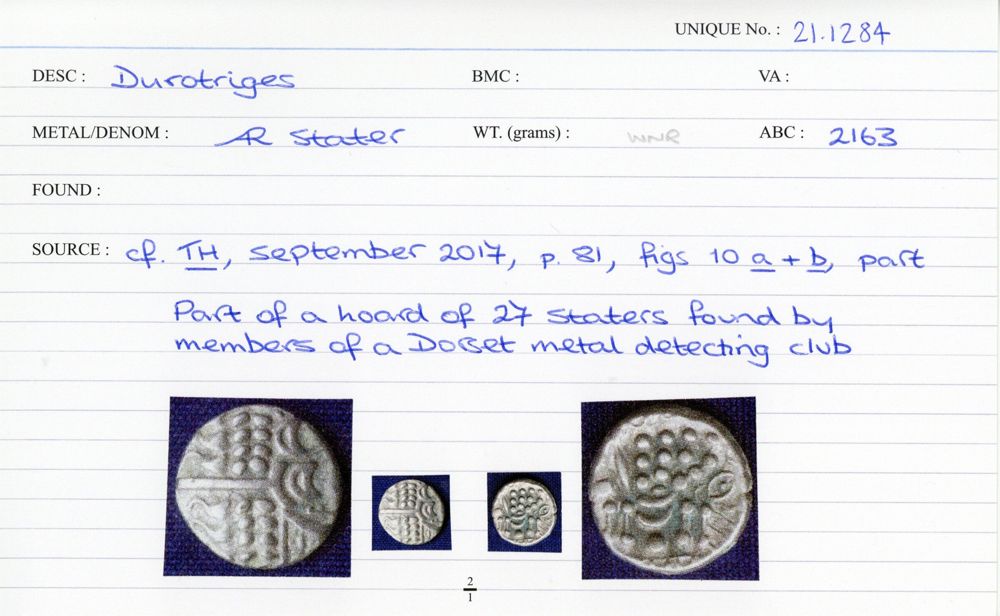 UNIQUE No. : 21.1284
DESC : Durotriges BMC : VA :
METAL/DENOM : AR Stater WT. (grams) : WNR ABC : 2163
FOUND :
SOURCE : cf. TH, September 2017, p. 81, figs 10 a + b, part
Part of a hoard of 27 staters found by
members of a Dorset metal detecting club
2
1